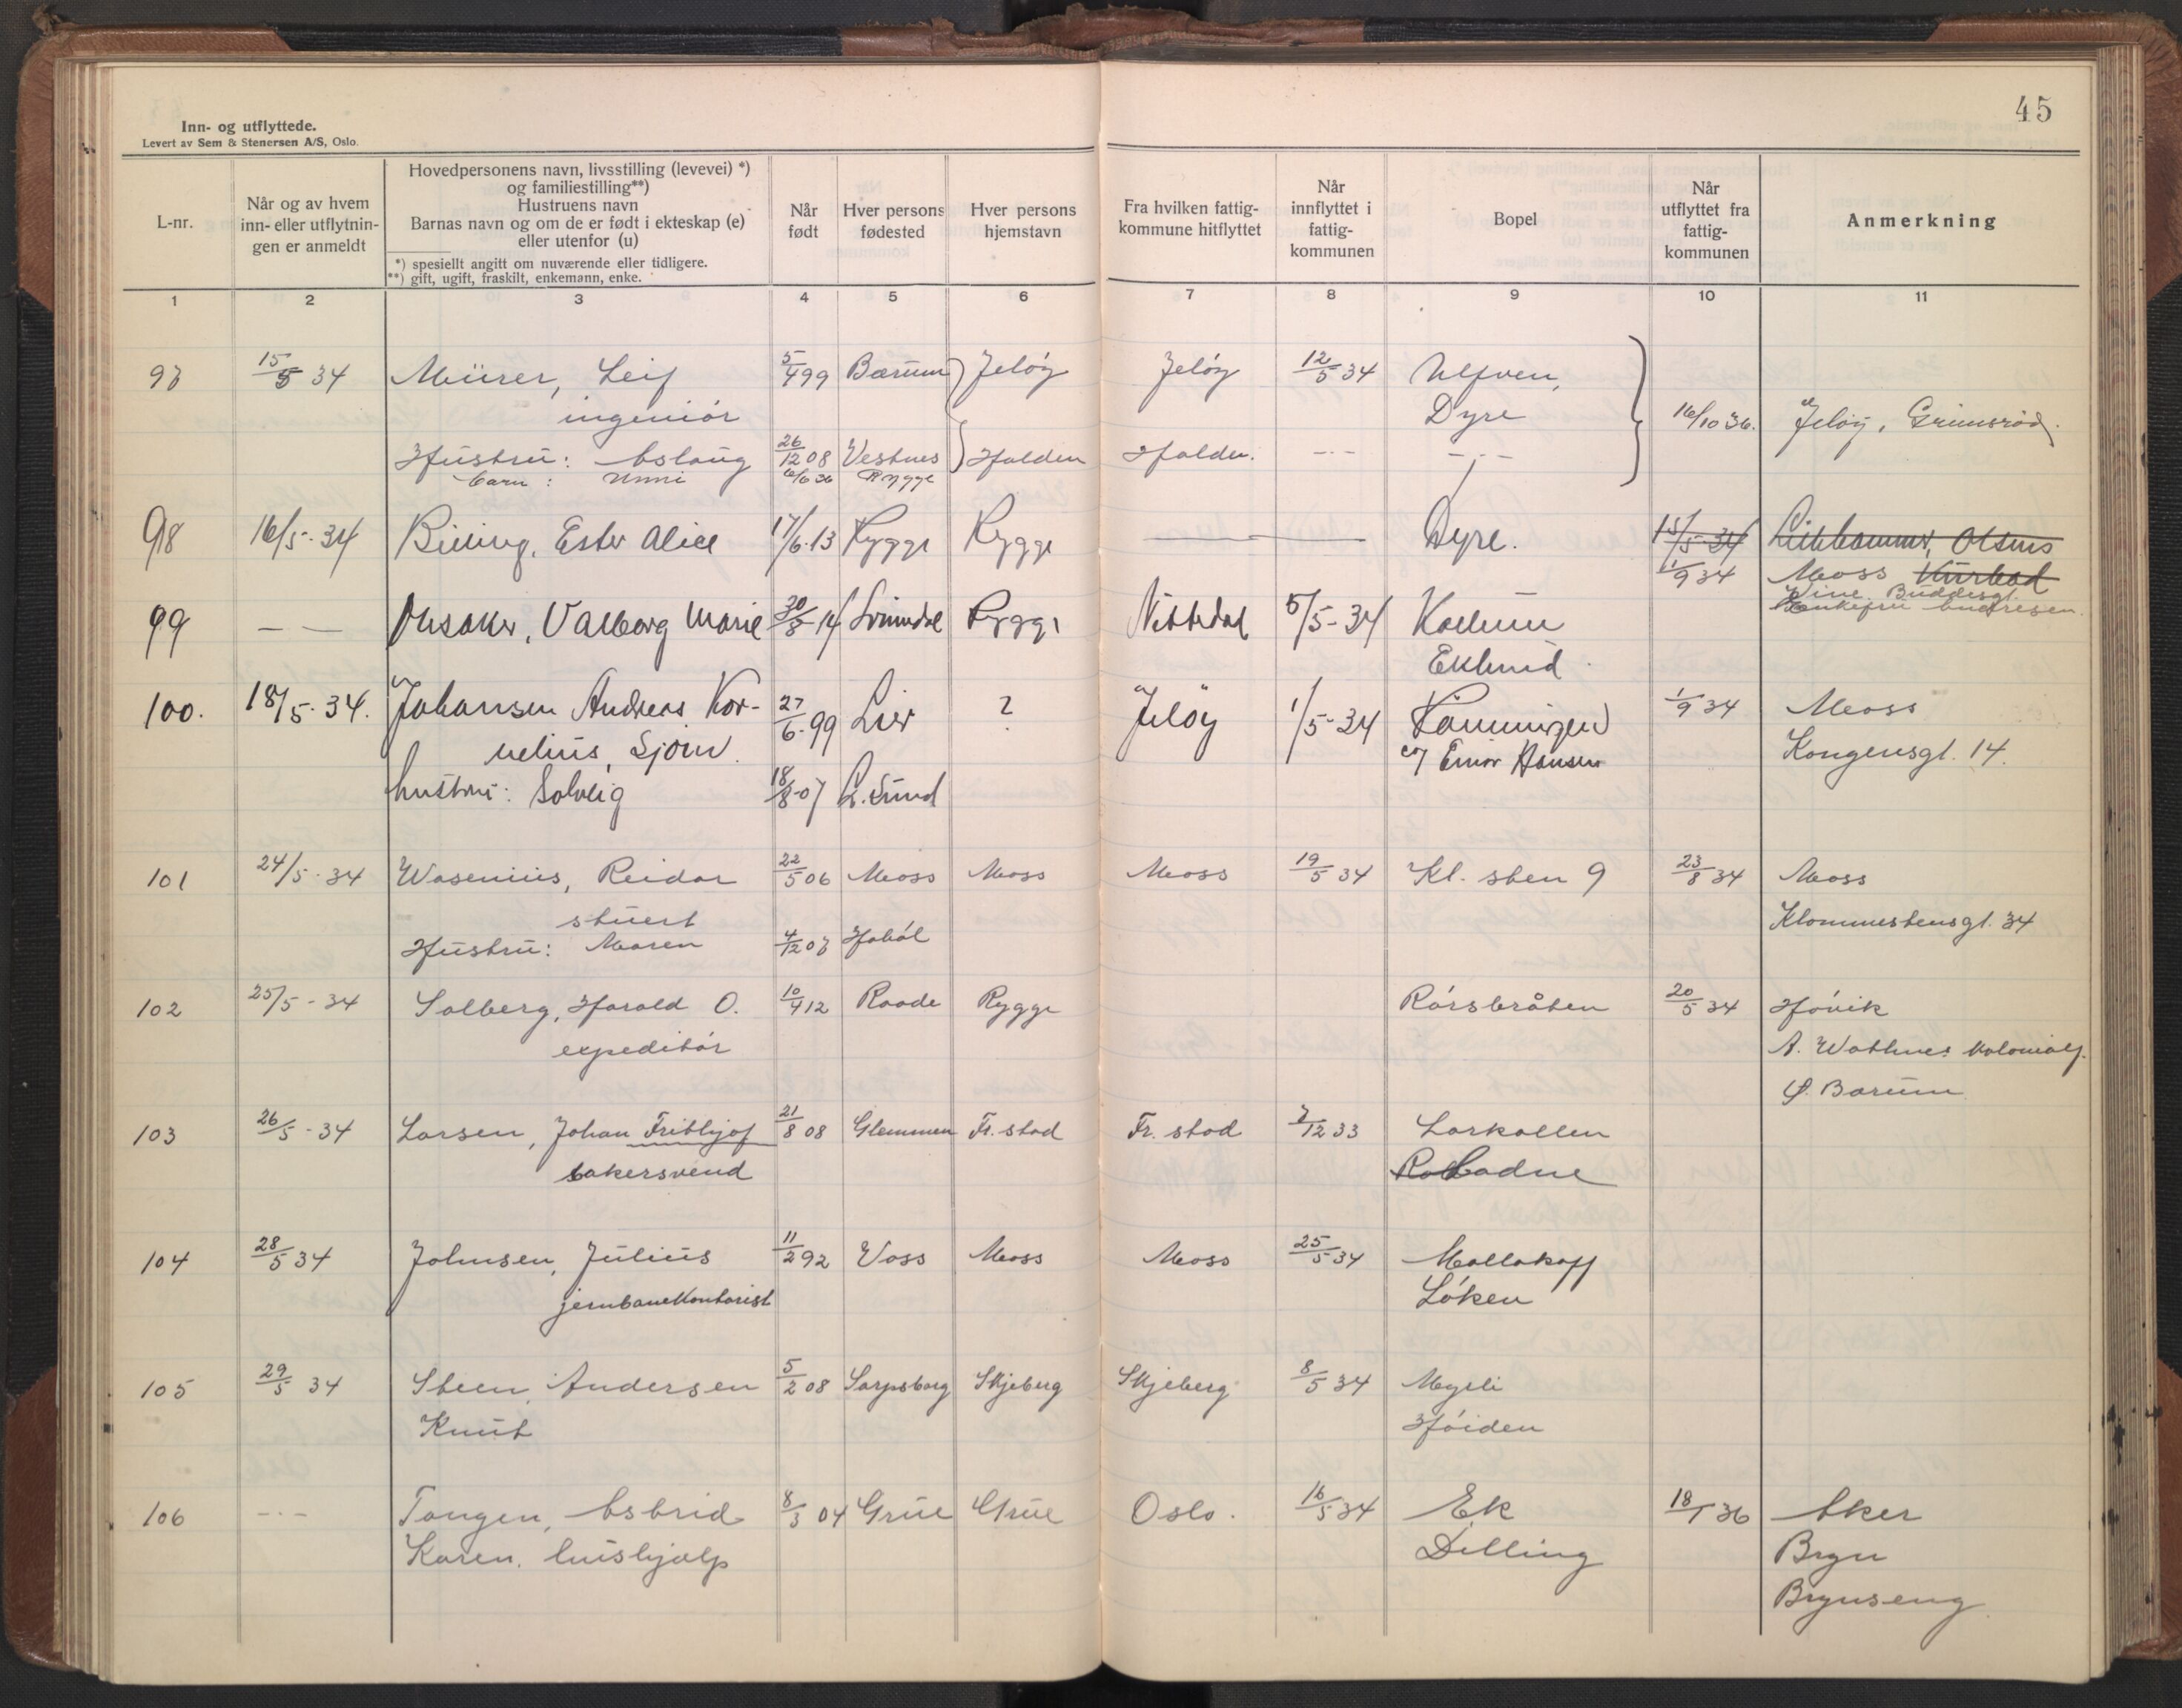 45
Inn- og utflyttede.
Levert av Sem & Stenersen A/S, Oslo.
L-nr.
Når og av hvem
inn- eller utflytnin-
gen er anmeldt
Hovedpersonens navn, livsstilling (levevei) *)
og familiestilling**)
Hustruens navn
Barnas navn og om de er født i ekteskap (e)
eller utenfor (u)
*) spesielt angitt om nuværende eller tidligere.
**) gift, ugift, fraskilt, enkemann, enke.
Når
født
Hver persons
fødested
Hver persons
hjemstavn
Fra hvilken fattig-
kommune hitflyttet
Når
innflyttet i
fattig-
kommunen
Bopel
Når
utflyttet fra
fattig-
kommunen
Anmerkning
1 2 3 4 5 6 7 8 9 10 11
97 15/5 34 Mürer, Leif 5/4 99 Bærum Jeløy Jeløy 12/5 34 Ulfven,
ingeniør Dyre 16/10 36. Jeløy, Grimsrød.
Hustru: Aslaug 26/12 08 Vestnes Halden Halden. -·- -·-
Barn: Unni 6/6 36 Rygge
98 16/5-34 Ester Alice 17/6-13 Rygge Rygge Dyre. 15/5-34 Lillehammer, Olsens
1/9 34 Moss Kurbad
Buddesgt.
Enkefru Andresen.
99 — — Valborg Marie 30/8-14 Svinndal Rygge Nittedal 5/5-34 Kallum
Eklund.
100. 18/5-34. Johansen Andreas Kor- 27/6-99 Lier ? Jeløy 1/5-34 1/9 34 Moss
nelius, Sjøm. c/o Einar Hansen Kongensgt. 14.
hustru: Solveig 18/8-07 L. Sund
101 24/5-34 Wasenius, Reidar 22/5 06 Moss Moss Moss 19/5 34 Kl. sten 9 23/8 34 Moss
stuert Klommestensgt. 34
Hustru: Maren 4/12 07 Hobøl
102 25/5-34 Solberg, Harald O. 10/4 12 Raade Rygge Rörsbråten 20/5 34 Høvik
expeditør A. Wathnes Kolonialf.
Ø. Bærum
103 26/5-34 Larsen, Johan Frithjof 21/8 08 Glemmen Fr. stad Fr. stad 7/12 33 Larkollen
bakersvend
104 28/5 34 Johnsen, Julius 11/2 92 Voss Moss Moss 25/5 34 Mallakoff
jernbanekontorist Løken
105 29/5 34 Steen, Andersen 5/2 08 Sarpsborg Skjeberg Skjeberg 8/5 34 Myrli
Knut Høiden
106 -·- Tangen, Astrid 8/3 04 Grue Grue Oslo. 16/5 34 Ek 18/1 36 Aker
Karen. hushjælp Dilling Bryn
Brynseng